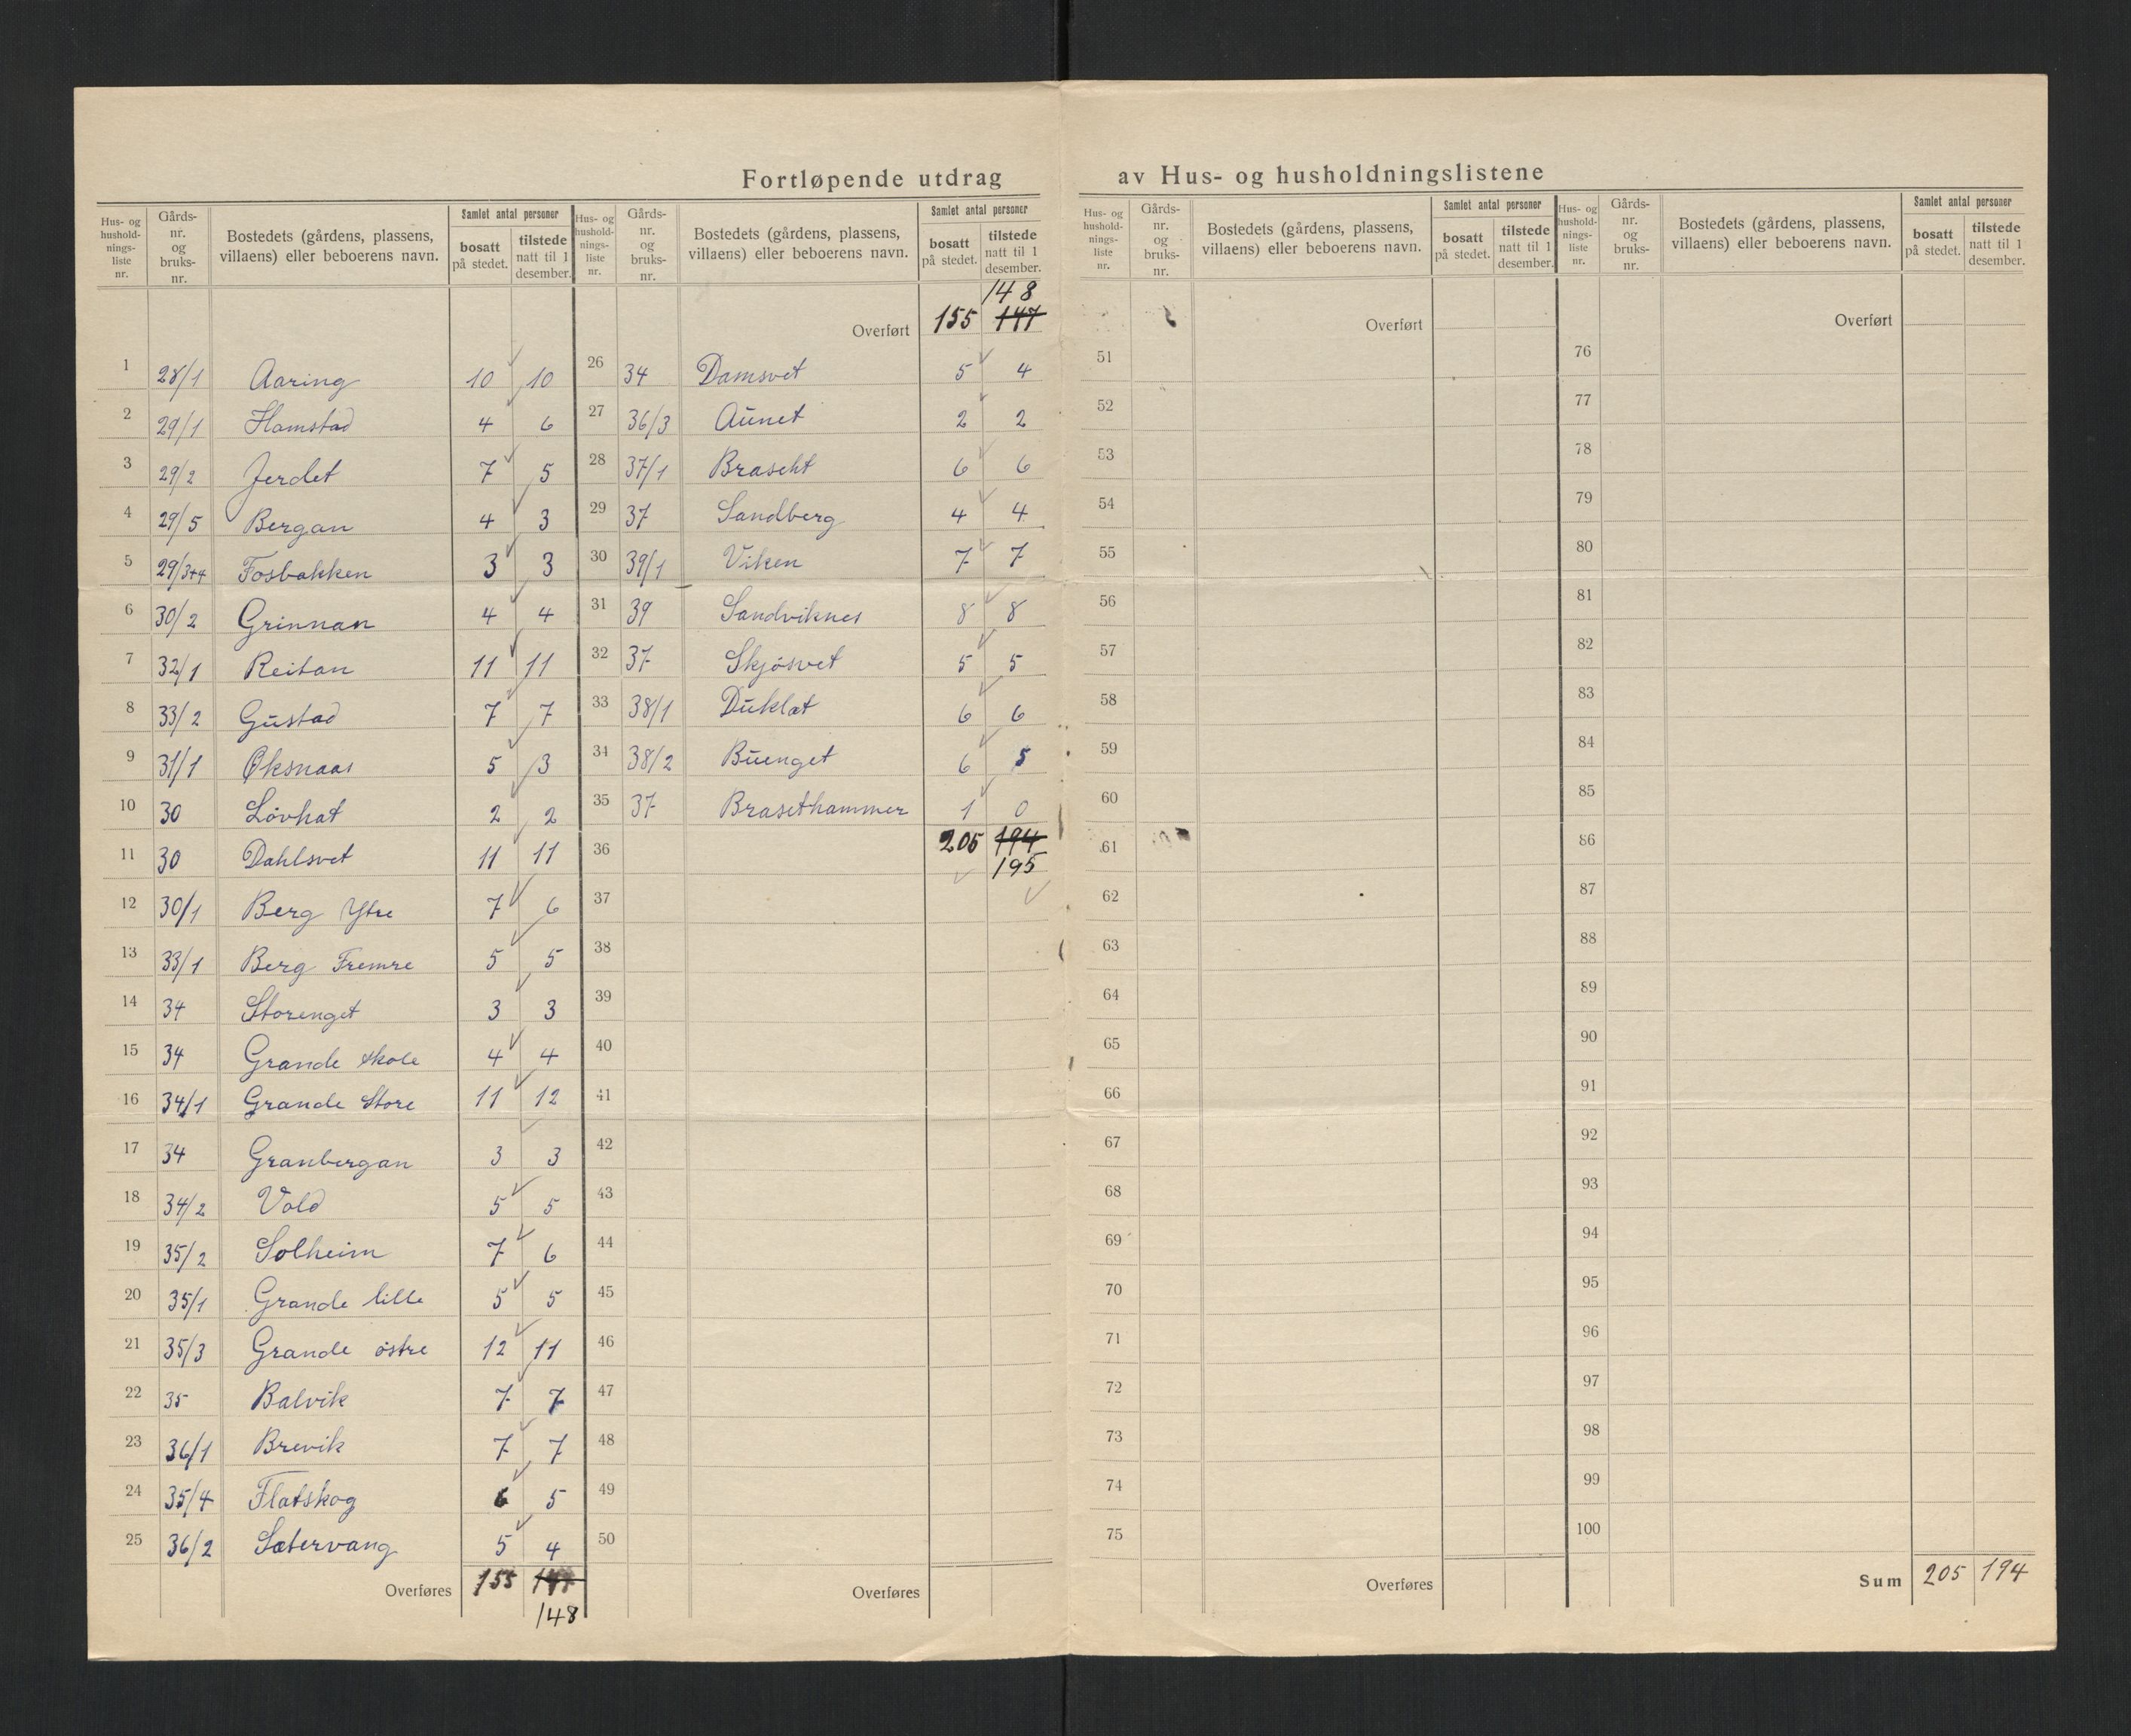 Fortløpende utdrag av Hus- og husholdningslistene
Hus- og hushold- nings- liste nr. | Gårds- nr. og bruks- nr. | Bostedets (gårdens, plassens, villaens) eller beboerens navn. | Samlet antal personer | bosatt på stedet. | tilstede natt til 1 desember.
1 28/1 Aaring 10 10
2 29/1 Hamstad 4 6
3 29/2 Jerdet 7 5
4 29/5 Bergan 4 3
5 29/3+4 Fosbakken 3 3
6 30/2 Grinnan 4 4
7 32/1 Reitan 11 11
8 33/2 Gustad 7 7
9 31/1 Øksnaas 5 3
10 30 Lövhat 2 2
11 30 Dahlsvet 11 11
12 30/1 Berg Ytre 7 6
13 33/1 Berg Fremre 5 5
14 34 Storenget 3 3
15 34 Grande skole 4 4
16 34/1 Grande Store 11 12
17 34 Granbergan 3 3
18 34/2 Vold 5 5
19 35/2 Solheim 7 6
20 35/1 Grande lille 5 5
21 35/3 Grande östre 12 11
22 35 Balvik 7 7
23 36/1 Brevik 7 7
24 35/4 Flatskog 6 5
25 36/2 Sætervang 5 4
Overføres 155 147
148
Hus- og hushold- nings- liste nr. | Gårds- nr. og bruks- nr. | Bostedets (gårdens, plassens, villaens) eller beboerens navn. | Samlet antal personer | bosatt på stedet. | tilstede natt til 1 desember.
148
Overført 155 147
26 34 Damsvet 5 4
27 36/3 Aunet 2 2
28 37/1 Braseht 6 6
29 37 Sandberg 4 4
30 39/1 Viken 7 7
31 39 Sandviknes 8 8
32 37 Skjösvet 5 5
33 38/1 Duklæt 6 6
34 38/2 Buenget 6 5
35 37 Brasethammer 1 0
36 205 194
195
37
38
39
40
41
42
43
44
45
46
47
48
49
50
Overføres
Hus- og hushold- nings- liste nr. | Gårds- nr. og bruks- nr. | Bostedets (gårdens, plassens, villaens) eller beboerens navn. | Samlet antal personer | bosatt på stedet. | tilstede natt til 1 desember.
Overført
51
52
53
54
55
56
57
58
59
60
61
62
63
64
65
66
67
68
69
70
71
72
73
74
75
Overføres
Hus- og hushold- nings- liste nr. | Gårds- nr. og bruks- nr. | Bostedets (gårdens, plassens, villaens) eller beboerens navn. | Samlet antal personer | bosatt på stedet. | tilstede natt til 1 desember.
Overført
76
77
78
79
80
81
82
83
84
85
86
87
88
89
90
91
92
93
94
95
96
97
98
99
100
Sum 205 194